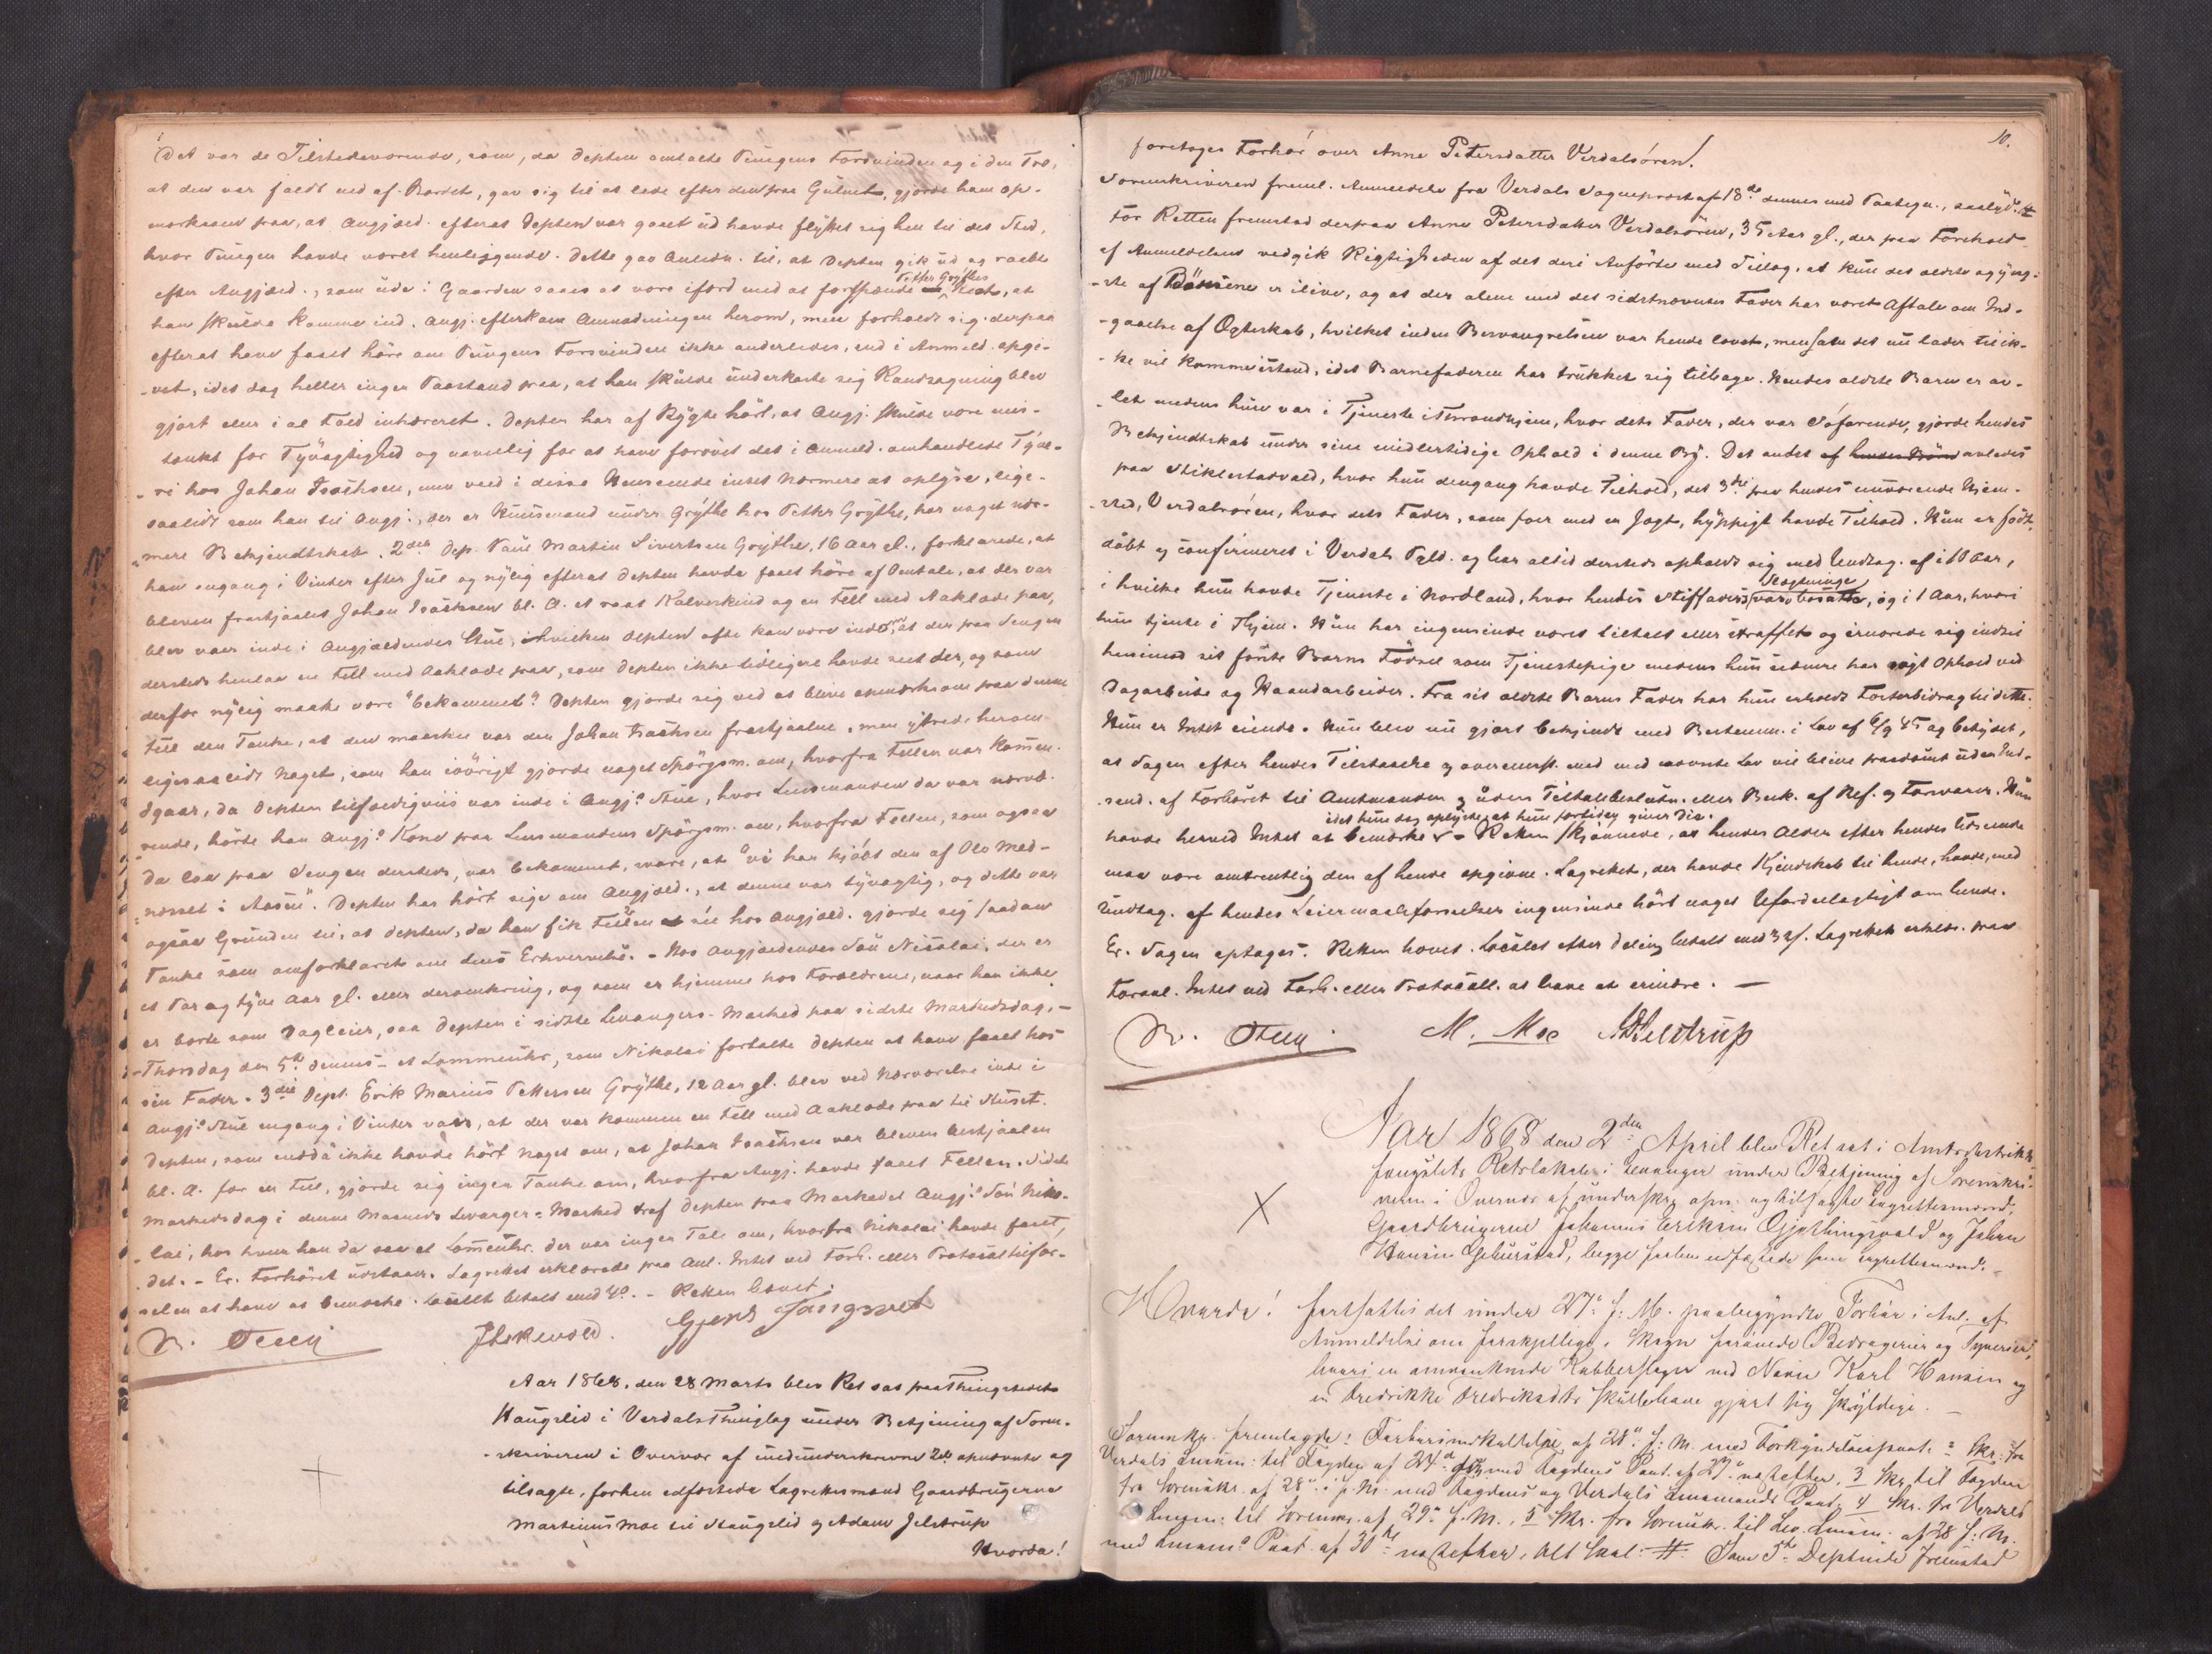 Det var de Tilstedeværende, som, da Depten omtalte Pungens Forsvinden og i den Tro,
at den var faldt ned af Bordet, gav sig til at lede efter den paa Gulvet, gjorde ham op-
mærksom paa, at Angjæld. efterat Depten var gaaet ud havde flyttet sig hen til det Sted,
hvor Pungen havde været henliggende. Dette gav Anledn. til, at Depten gik ud og raabte
efter Angjæld., som ude i Gaarden saaes at være ifærd med at forspænde Petter Grythes Hest, at
han skulde komme ind. Angj. efterkom Anmodningen herom, men forholdt sig derpaa
efterat have faaet høre om Pungens Forsvinden ikke anderledes, end i Anmeld. opgi-
-vet, idet dog heller ingen Paastand paa, at han skulde underkaste sig Randsagning blev
gjort eller i al Fald inhæreret. Depten har af Rygte hørt, at Angj. skulde være mis-
tænkt for Tyvagtighed og navnlig for at have forøvet det i Anmeld. omhandlede Tyve-
-ri hos Johan Isachsen, men veed i disse Henseende intet Nærmere at oplyse, lige-
saalidt som han til Angj., der er Huusmand under Grythe hos Petter Grythe, har noget nær-
-mere Bekjendtskab. 2den Dep. Paul Martin Sivertsen Grythe, 16 Aar gl., forklarede, at
han engang i Vinter efter Jul og nylig efterat Depten havde faaet høre af Omtale, at der var
bleven frastjaalet Johan Isachsen bl. A. et raat Kalveskind og en Fell med Aaklæde paa,
blev vaer inde i Angjældendes Stue, i hvilken Depten ofte kan være inde, at der paa Sengen
dersteds henlaa en Fell med Aaklæde paa, som Depten ikke tidligere havde seet der, og som
derfor nylig maatte være "bekommet". Depten gjorde sig ved at blive opmærksom paa denne
Fell den Tanke, at den maaskee var den Johan Isachsen frastjaalne, men ytrede herom
ligesaalidt Noget, som han iøvrigt gjorde noget Spørgsm. om, hvorfra Fellen var kommen.
Igaar, da Depten tilfældigviis var inde i Angj.s Stue, hvor Lensmanden da var nærvæ-
-rende, hørte han Angj.s Kone paa Lensmandens Spørgsm. om, hvorfra Fellen, som ogsaa
da laa paa Sengen dersteds, var bekommet, svare, at "vi har kjøbt den af Ole Med-
næsset i Aasen". Depten har hørt sige om Angjæld., at denne var tyvagtig, og dette var
ogsaa Grunden til, at Depten, da han fik Fellen at see hos Angjæld. gjorde sig saadan
Tanke som omforklaret om dens Erhvervelse. - Hos Angjældendes Søn Nicolai, der er
et Par og tyve Aar gl. eller deromkring, og som er hjemme hos Forældrene, naar han ikke
er borte som Dagleier, saa Depten i sidste Levangers-Marked paa sidste Markedsdag, -
-Thorsdag den 5te dennes - et Lommeuhr, som Nikolai fortalte Depten at have faaet hos
sin Fader. 3die Dept. Erik Marius Pettersen Grythe, 12 Aar gl. blev ved Nærværelse inde i
Angj.s Stue engang i Vinter vaer, at der var kommen en Fell med Aaklæde paa til Huset.
Depten, som endda ikke havde hørt Noget om, at Johan Isachsen var bleven bestjaalen
bl. A. for en Fell, gjorde sig ingen Tanke om, hvorfra Angj. havde faaet Fellen. Sidste
Markedsdag i denne Maaneds Levanger-Marked traf Depten paa Markedet Angj.s Søn Niko-
-lai, hos hvem han da saa et Lommeuhr. Der var ingen Tale om, hvorfra Nikolai havde faaet
det. - Er. Forhøret udstaaer. Lagrettet erklærede paa Anl. Intet ved Forh. eller Protocoltilfør-
selen at have at bemærke. betalt med 40. - Retten hævet.
N. Steen
Gjert Fangsvet
Aar 1868, den 28 Marts blev Ret sat paa Thingstedet
Haugslid i Verdals Thinglag under Betjening af Soren-
-skriveren i Overvær af medunderskrevne 2de opnævnte og
tilsagte, forhen edfæstede Lagrettesmænd Gaardbrugerne
Martinus Moe til Haugslid og Adam Jelstrup
Hvorda!
10.
foretoges Forhør over Anne Petersdatter Verdalsøren!
Sorenskriveren freml. Anmeldelse fra Verdals Sognepræst af 18de dennes med Paategn., saalyd. #
For Retten fremstod derpaa Anne Petersdatter Verdalsøren, 35 Aar gl., der paa Forehold
af Anmeldelsen vedgik Rigtigheden af det deri Anførte med Tillæg, at kun det ældste og yng-
-ste af Børnene er ilive, og at der alene med det sidstnævntes Fader har været Aftale om Ind-
-gaaelse af Ægteskab, hvilket inden Besvangrelsen var hende lovet, men som det nu lader til ik-
-ke vil komme istand, idet Barnefaderen har trukket sig tilbage. Hendes ældste Barn er av-
-let medens hun var i Tjeneste i Throndhjem, hvor dets Fader, der var Søfarende, gjorde hendes
Bekjendtskab under sine midlertidige Ophold i denne By. Det andet af hendes Børn avledes
paa Stiklestadvald, hvor hun dengang havde Tilhold, det 3die paa hendes nuværende Hjem-
-sted, Verdalsøren, hvor dets Fader, som foer med en Jagt, hyppigt havde Tilhold. Hun er født,
døbt og confirmeret i Verdals Pgld. og har altid dersteds opholdt sig med Undtag. af i 10 Aar,
i hvilke hun havde Tjeneste i Nordland, hvor hendes Stiffaders Slægtninge var bosatte, og i 1 Aar, hvori
hun tjente i Thjem. Hun har ingensinde været tiltalt eller straffet og ernærede sig indtil
henimod sit første Barns Fødsel som Tjenestepige medens hun sednere har søgt Ophold ved
Dagarbeide og Haandarbeider. Fra sit ældste Barns Fader har hun erholdt Fosterbidrag til dette.
Hun er Intet eiende. Hun blev nu gjort bekjendt med Bestemm. i Lov af 6/9 45 og betydet,
at Sagen efter hendes Tilstaaelse og overeensst. med nævnte Lov vil blive paadømt uden Ind-
send. af Forhøret til Amtmanden og uden Tiltalebeslutn. eller Besk. af Ref. og Forsvarer. Hun
havde herved Intet at bemærke idet hun dog oplyste, at hun fortiden giver Die. - Retten skjønnede, at hendes Alder efter hendes Udseende
maa være omtrentlig den af hende opgivne. Lagrettet, der havde Kjendskab til hende, havde, med
Undtag. af hendes Leiermaalsforseelser ingensinde hørt noget Ufordeelagtigt om hende.
Er. Sagen optages. Retten hævet. Localet efter Deling betalt med . Lagrettet erklær. paa
Foranl. Intet ved Forh. eller Protocoll. at have at erindre. -
N. Steen
M. Moe
A Jelstrup
Aar 1868 den 2den April blev Ret sat i Amtsdistrikts-
fængslets Retslokale i Levanger under Betjening af Sorenskri-
veren i Overvær af underskr. opn. og tilsagte Lagrettesmænd,
Gaardbrugerne Johannes Eriksen Gjethingsvald og Johan
Hansen Geburstad, begge forhen edfæstede som Lagrettesmænd. -
Hvorda! fortsattes det under 27de f. M. paabegyndte Forhør i Anl. af
Anmeldelse om forskjellige, i Skogn forøvede Bedragerier og Tyverier,
hvori en omvankende Kobberslager ved Navn Karl Hansen og
en Fredrikke Fredriksdtr. skulle have gjort sig skyldige. -
Sorenskr. fremlagde: Forhørsindkaldelse af 28de f. M. med Forkyndelsespaat. 2 Skr. fra
Verdals Lensm: til Fogden af 24de med Fogdens Paat. af 27de næstefter, 3 Skr. til Fogden
fra Sorenskr. af 28de f. M. med Fogdens og Verdals Lensmands Paat. 4 Skr. fra Verdals
Lensm: til Sorenskr. af 29de f. M., 5 Skr. fra Sorenskr. til Lev. Lensm: af 28 f. M.
med Lensm.s Paat. af 30te næstefter, Alt saal: #: Som 5te Deptinde fremstod